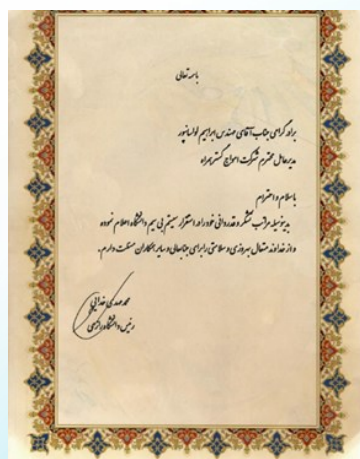 باسمه تعالی
برادر گرامی جناب آقای مهندس ابراهیم لولسانپور
مدیرعامل محترم شرکت امواج گستر همراه
باسلام و احترام
بدینوسیله مراتب تشکر و قدردانی خود را در استقرار سیستم بی سیم دانشگاه اعلام نموده
و از خداوند متعال بهروزی و سلامتی را برای جنابعالی و سایر همکاران مسئلت دارم.
محمد مهدی خدایی
رئیس دانشگاه رازی